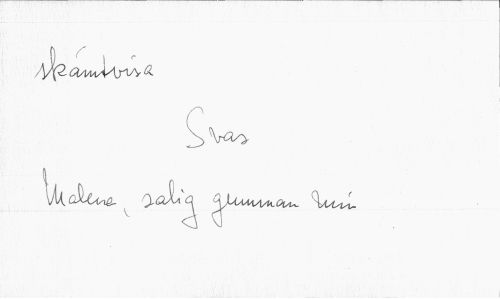 skämtvisa
Svar
Malena, salig gumman min